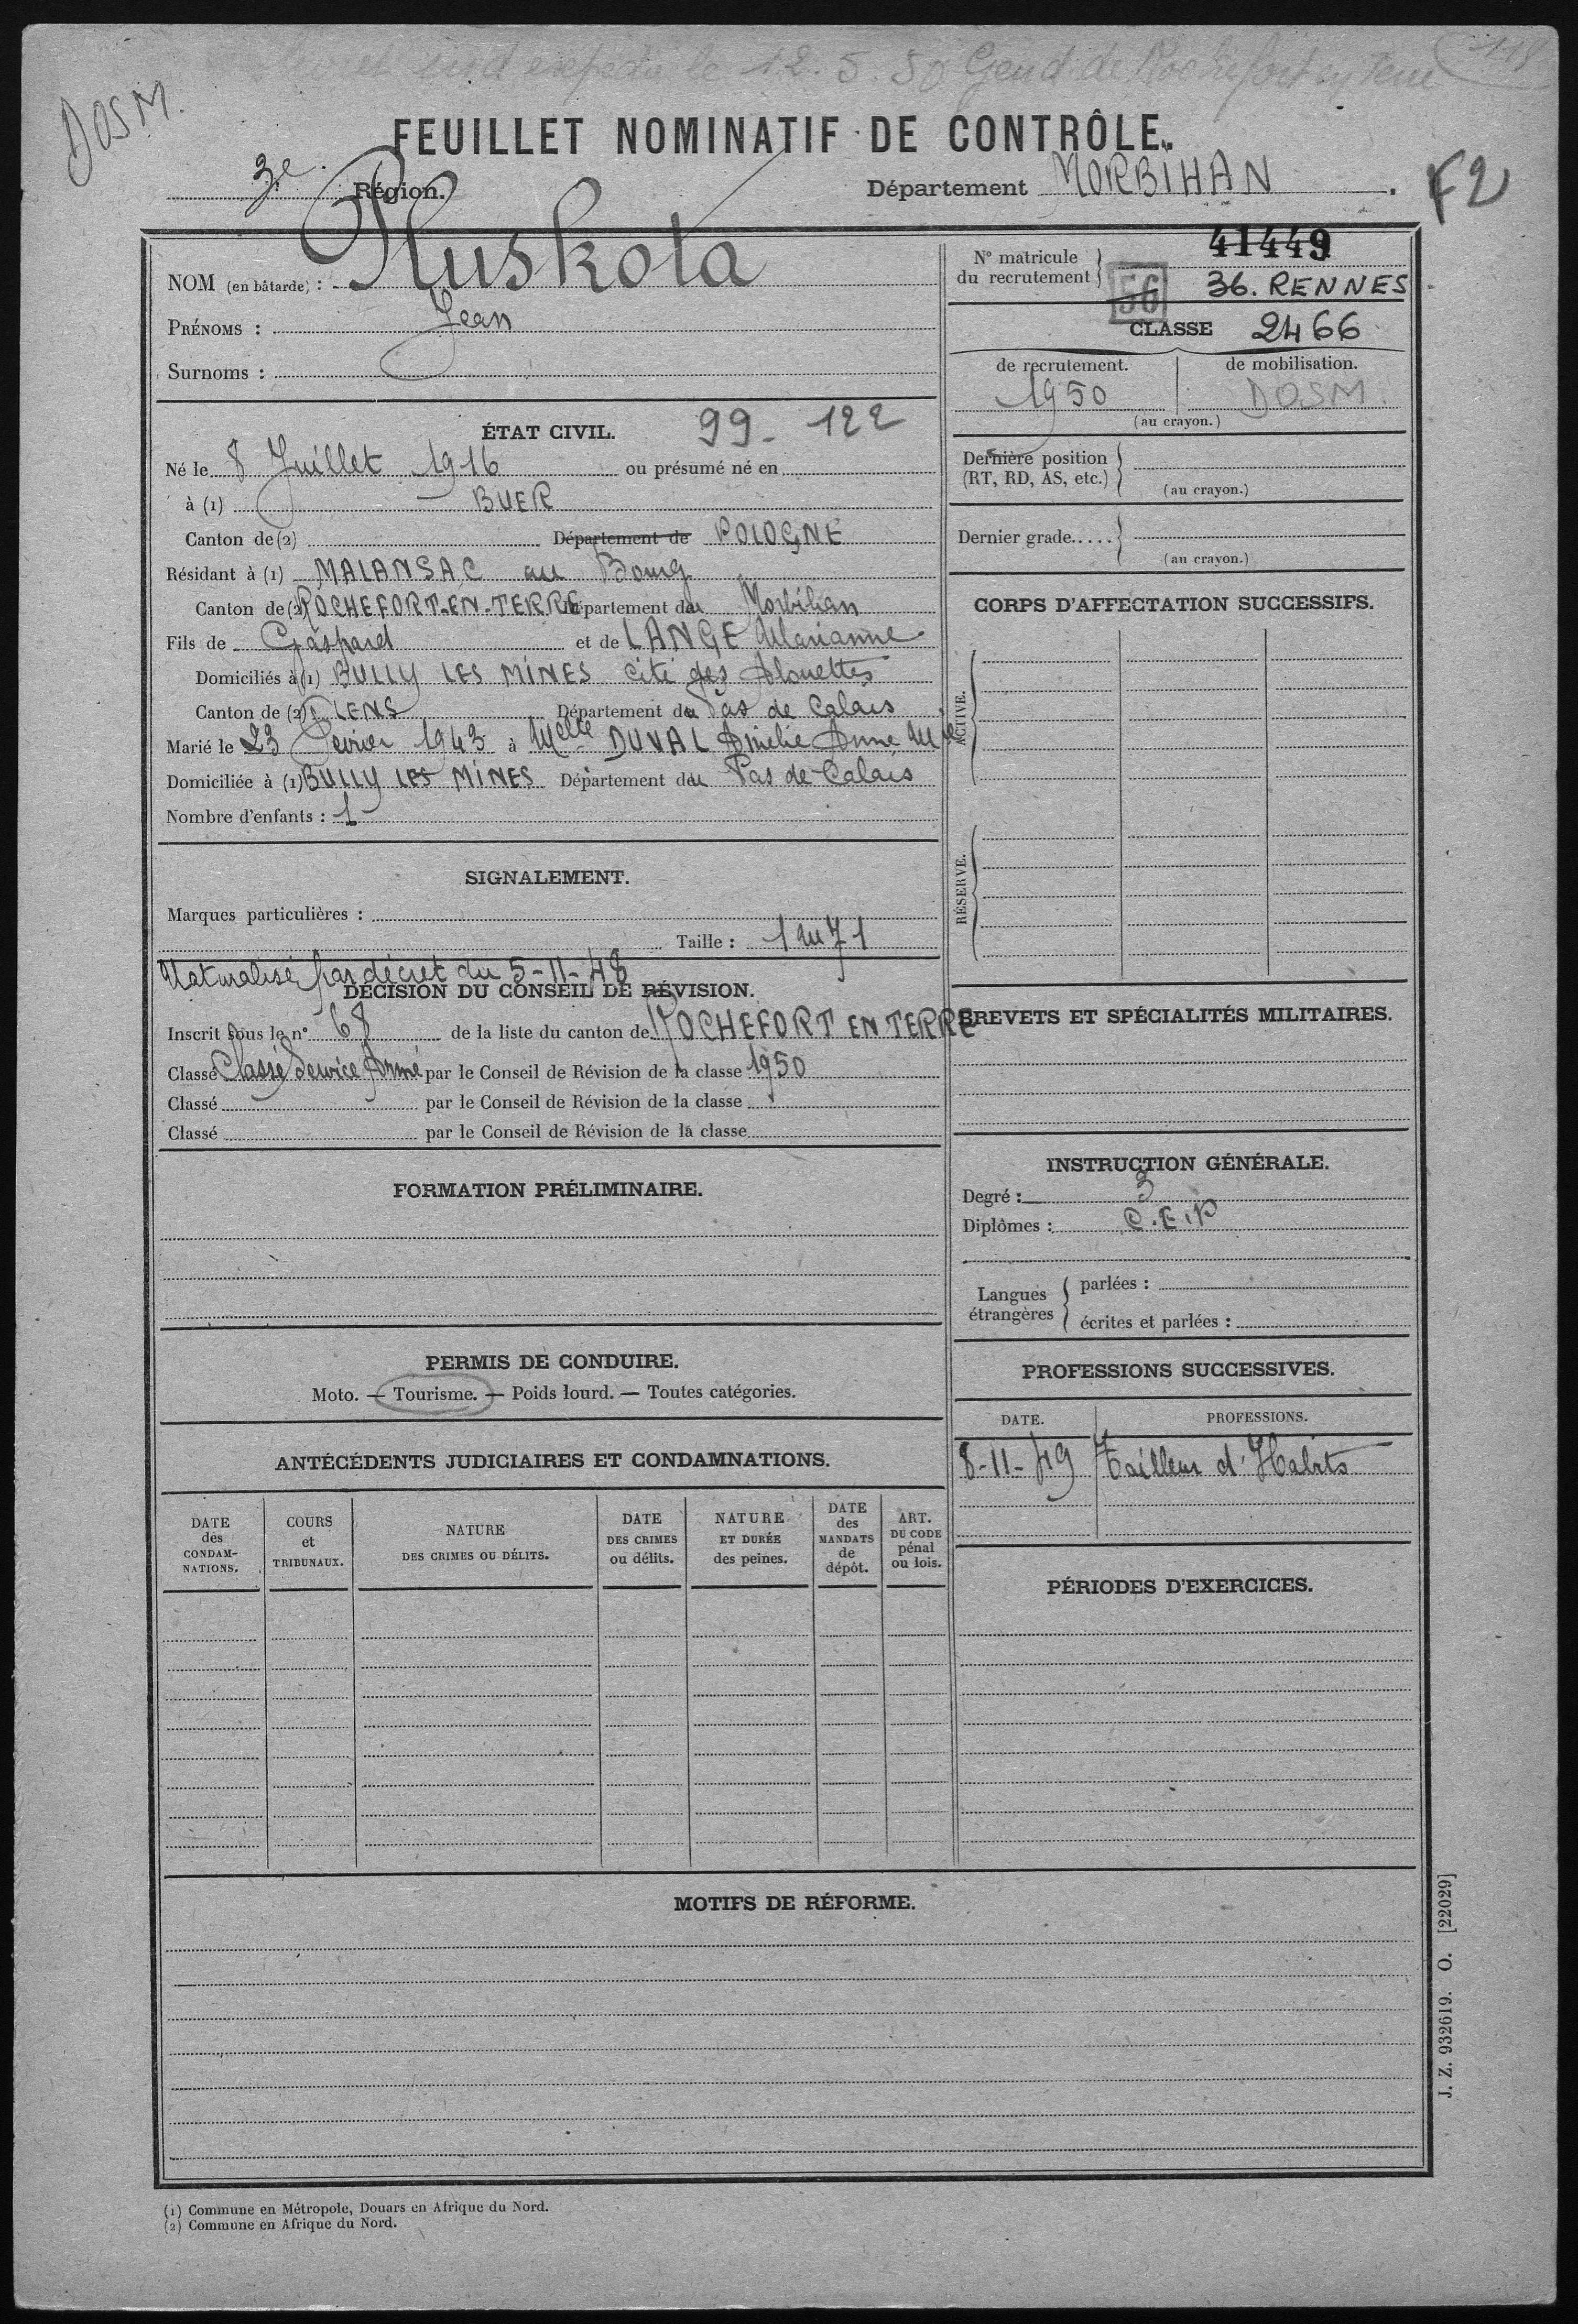 expédié le 12.5.50 Gend. de Rochefort en Terre
118
DOSM.
FEUILLET NOMINATIF DE CONTRÔLE.
3e Région. Département MORBIHAN.
F2
NOM (en bâtarde) : Pluskota
PRÉNOMS : Jean
Surnoms :
N° matricule du recrutement } 41449
56 36. RENNES
CLASSE 2466
de recrutement. de mobilisation.
1950 DOSM.
(au crayon.)
ÉTAT CIVIL. 99-122
Né le 8 Juillet 1916 ou présumé né en
à (1) BUER
Canton de (2) Département de POLOGNE
Résidant à (1) MALANSAC au Bourg
Canton de (2) ROCHEFORT-EN-TERRE Département du Morbihan
Fils de Gaspard et de LANGE Marianne
Domiciliés à (1) BULLY LES MINES cité des Alouettes
Canton de (2) LENS Département du Pas de Calais
Marié le 23 Février 1943 à Melle DUVAL Amélie Anne Mie
Domiciliée à (1) BULLY LES MINES Département du Pas de Calais
Nombre d'enfants : 1
Dernière position (RT, RD, AS, etc.)
(au crayon.)
Dernier grade.....
(au crayon.)
CORPS D'AFFECTATION SUCCESSIFS.
ACTIVE.
RÉSERVE.
SIGNALEMENT.
Marques particulières :
Taille : 1m71
Naturalisé par décret du 5-11-48
DÉCISION DU CONSEIL DE RÉVISION.
Inscrit sous le n° 68 de la liste du canton de ROCHEFORT EN TERRE
Classé Classé Service Armé par le Conseil de Révision de la classe 1950
Classé par le Conseil de Révision de la classe
Classé par le Conseil de Révision de la classe
BREVETS ET SPÉCIALITÉS MILITAIRES.
FORMATION PRÉLIMINAIRE.
INSTRUCTION GÉNÉRALE.
Degré : 3
Diplômes : C.E.P
Langues étrangères
parlées :
écrites et parlées :
PERMIS DE CONDUIRE.
Moto. — Tourisme. — Poids lourd. — Toutes catégories.
PROFESSIONS SUCCESSIVES.
DATE. PROFESSIONS.
8-11-49 Tailleur d'Habits
ANTÉCÉDENTS JUDICIAIRES ET CONDAMNATIONS.
DATE des CONDAM-NATIONS.
COURS et TRIBUNAUX.
NATURE DES CRIMES OU DÉLITS.
DATE DES CRIMES ou délits.
NATURE ET DURÉE des peines.
DATE des MANDATS de dépôt.
ART. DU CODE pénal ou lois.
PÉRIODES D'EXERCICES.
MOTIFS DE RÉFORME.
J. Z. 932619. O. [22029]
(1) Commune en Métropole, Douars en Afrique du Nord.
(2) Commune en Afrique du Nord.